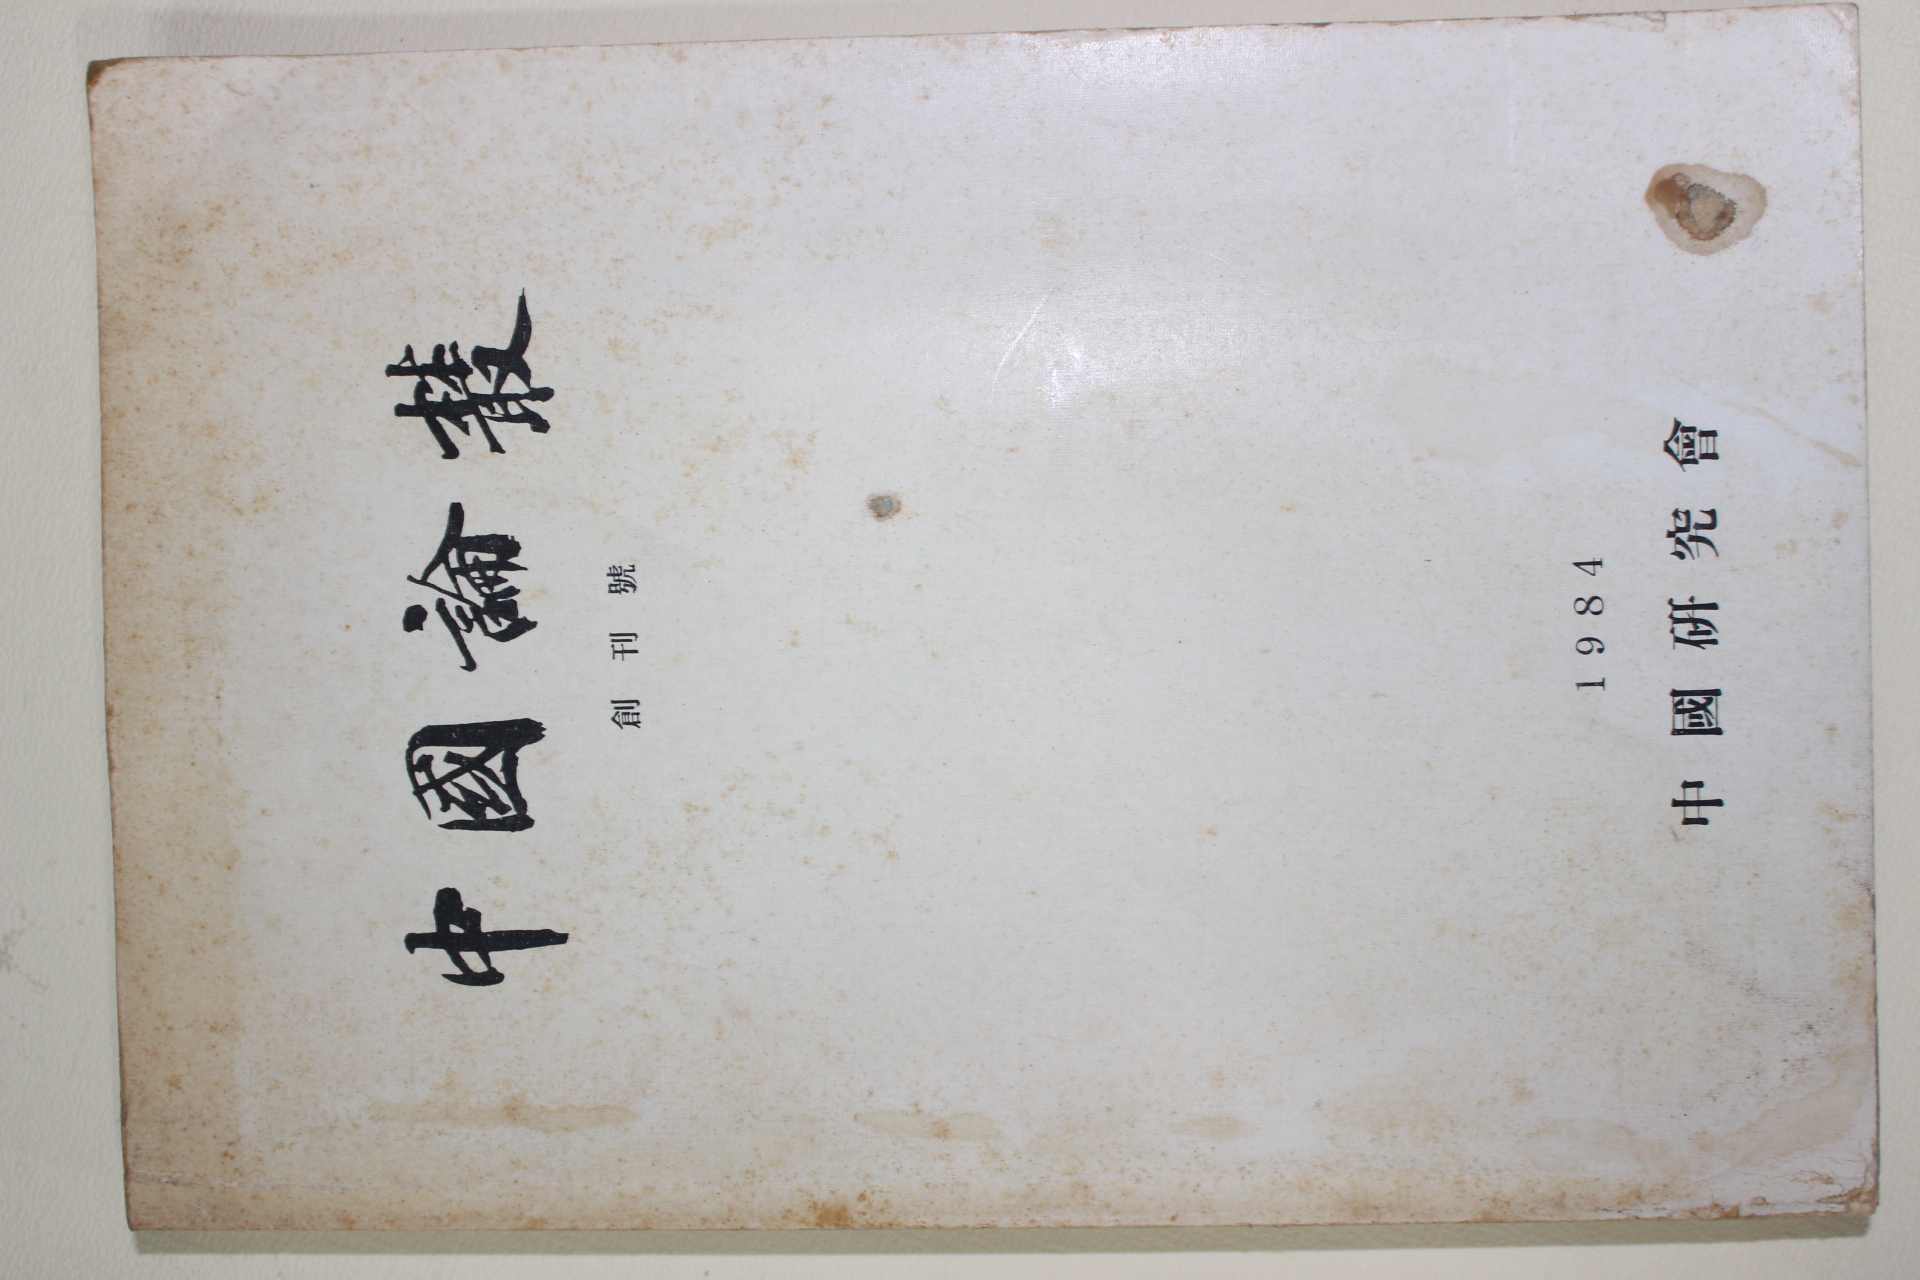 中國論叢
創刊號
1984
中國硏究會